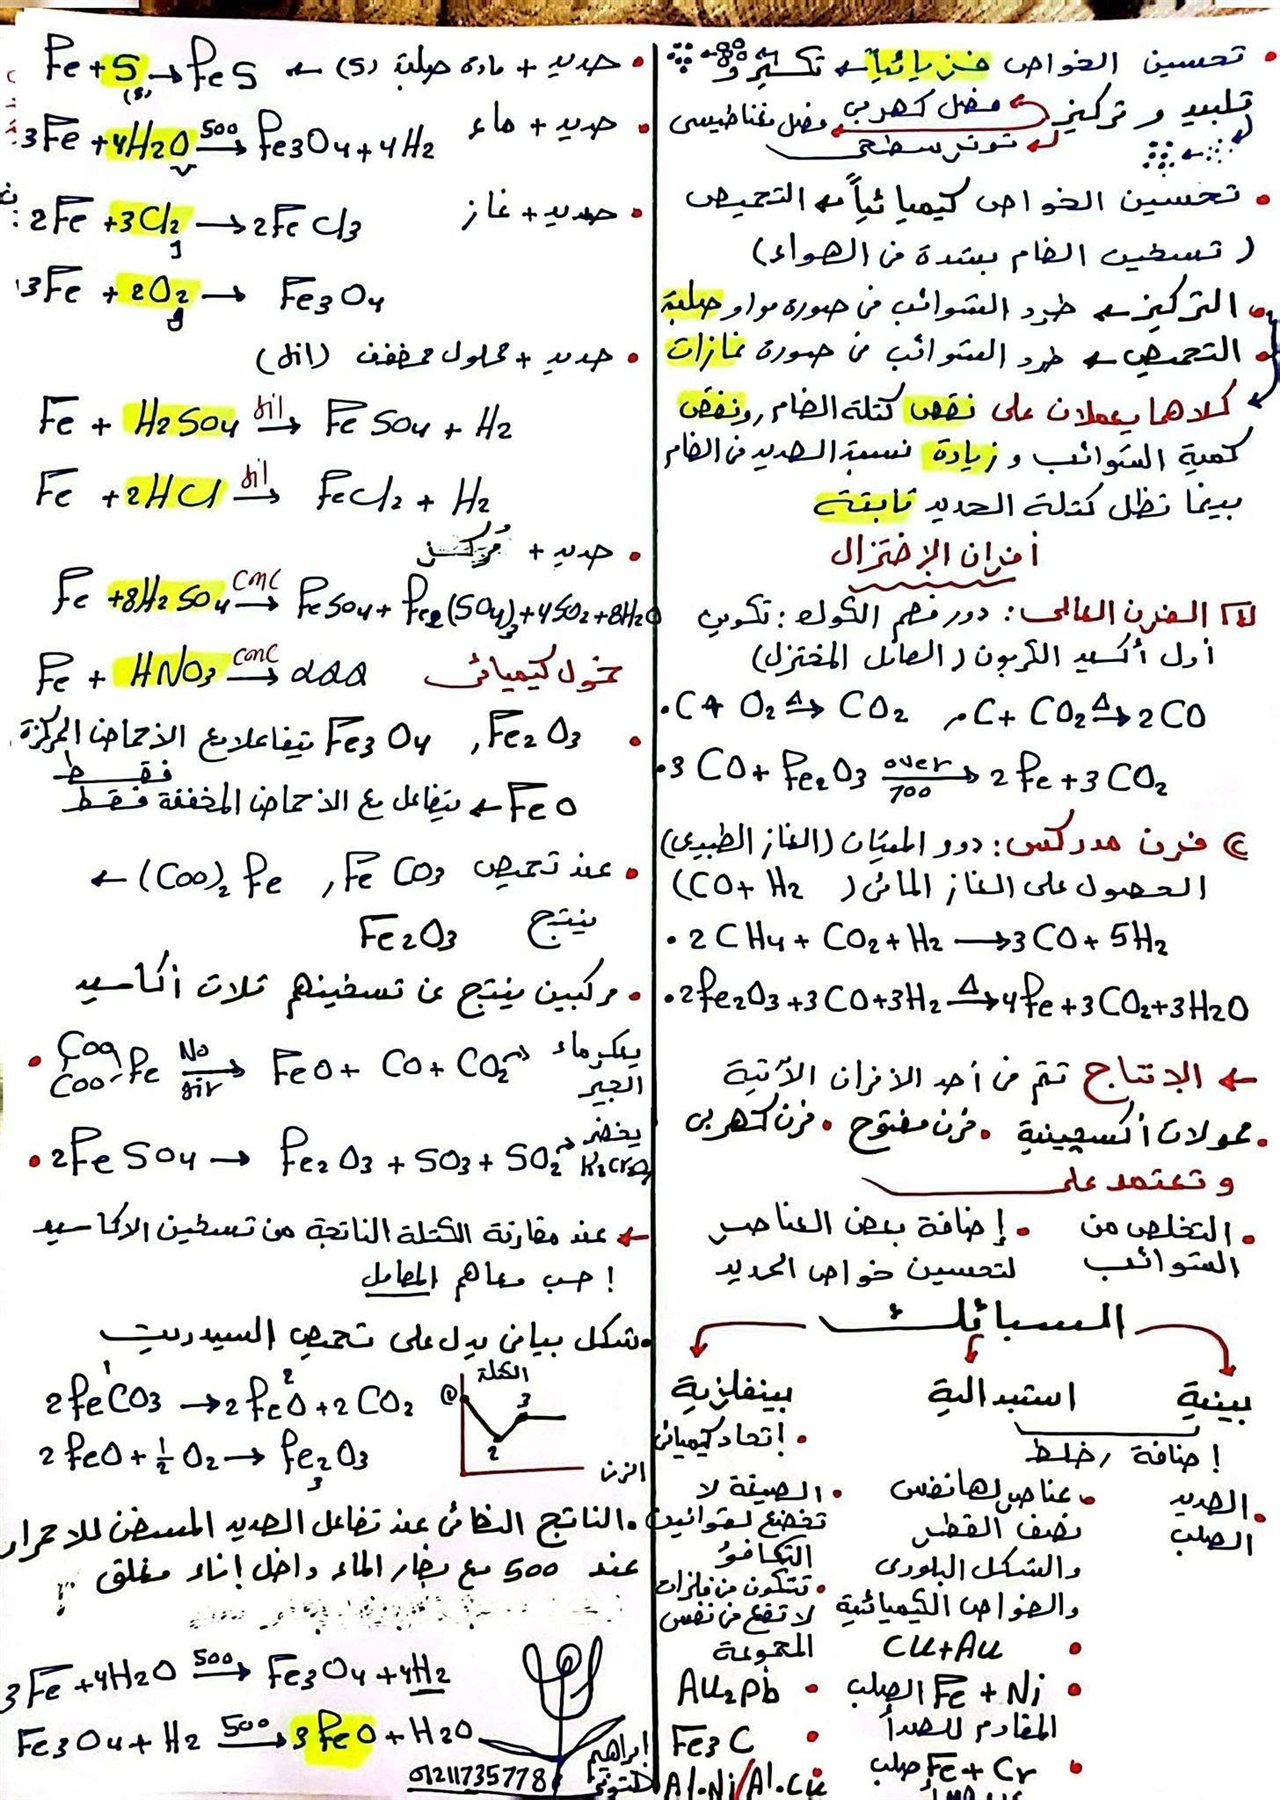 • تحسين الخواص فيزيائياً ← تكسير و
تلبيد و تركيز ← فصل كهربى فصل مغناطيسى
توتر سطحى
• تحسين الخواص كيميائياً ← التحميص
(تسخين الخام بشدة فى الهواء)
• التركيز ← طرد الشوائب فى صورة مواد صلبة
• التحميص ← طرد الشوائب فى صورة غازات
كلاهما يعملان على نقص كتلة الخام ونقص
كمية الشوائب و زيادة نسبة الحديد فى الخام
بينما تظل كتلة الحديد ثابتة
أفران الإختزال
١ الفرن العالى: دور فحم الكوك: تكوين
أول أكسيد الكربون (العامل المختزل)
• C + O2 Δ→ CO2 , • C + CO2 Δ→ 2CO
• 3CO + Fe2O3 over 700→ 2Fe + 3CO2
٢ فرن مدركس: دور الميثان (الغاز الطبيعى)
الحصول على الغاز المائى (CO + H2)
• 2CH4 + CO2 + H2 → 3CO + 5H2
• 2Fe2O3 + 3CO + 3H2 Δ→ 4Fe + 3CO2 + 3H2O
← الإنتاج تتم فى أحد الأفران الآتية
• محولات أكسجينية • فرن مفتوح • فرن كهربى
و تعتمد على
• التخلص من الشوائب
• إضافة بعض العناصر
لتحسين خواص الحديد
السبائك
بينية
استبدالية
بينفلزية
إضافة / خلط
• الحديد
الصلب
• عناصر لها نفس
نصف القطر
والشكل البلورى
والخواص الكيميائية
• Cu + Au
• Fe + Ni الصلب
المقاوم للصدأ
• Fe + Cr صلب
• إتحاد كيميائى
• الصيغة لا
تخضع لقوانين
التكافؤ
• تتكون من فلزات
لا تقع فى نفس
المجموعة
• Au2Pb
• Fe3C
• Al.Ni/Al.Cu
• حديد + مادة صلبة (S) ← Fe + S (s) → FeS
• حديد + ماء 3Fe + 4H2O 500→ Fe3O4 + 4H2
v
• حديد + غاز 2Fe + 3Cl2 → 2FeCl3
g
3Fe + 2O2 → Fe3O4
g
• حديد + محلول مخفف (dil)
Fe + H2SO4 dil→ FeSO4 + H2
Fe + 2HCl dil→ FeCl2 + H2
• حديد + مركز
Fe + 8H2SO4 conc→ FeSO4 + Fe2(SO4)3 + 4SO2 + 8H2O
Fe + HNO3 conc→ خمول كيميائى
• Fe3O4 , Fe2O3 يتفاعلا مع الأحماض المركزة
فقط
FeO ← يتفاعل مع الأحماض المخففة فقط
• عند تحميص FeCO3 , (COO)2Fe ←
ينتج Fe2O3
• مركبين ينتج عن تسخينهم ثلاث أكاسيد
• COO COO Fe No air→ FeO + CO + CO2 → يعكر ماء الجير
• 2FeSO4 → Fe2O3 + SO3 + SO2 → يخضر
← عند مقارنة الكتلة الناتجة من تسخين الاكاسيد
إحسب معاهم المعامل
• شكل بيانى يدل على تحميص السيدريت
1 2
2FeCO3 → 2FeO + 2CO2
2FeO + ½O2 → Fe2O3
3
الكتلة
1 2 3
الزمن
• الناتج النهائى عند تفاعل الحديد المسخن للاحمرار
عند 500 مع بخار الماء داخل إناء مغلق
3Fe + 4H2O 500→ Fe3O4 + 4H2
Fe3O4 + H2 500→ 3FeO + H2O
ابراهيم
01211735778